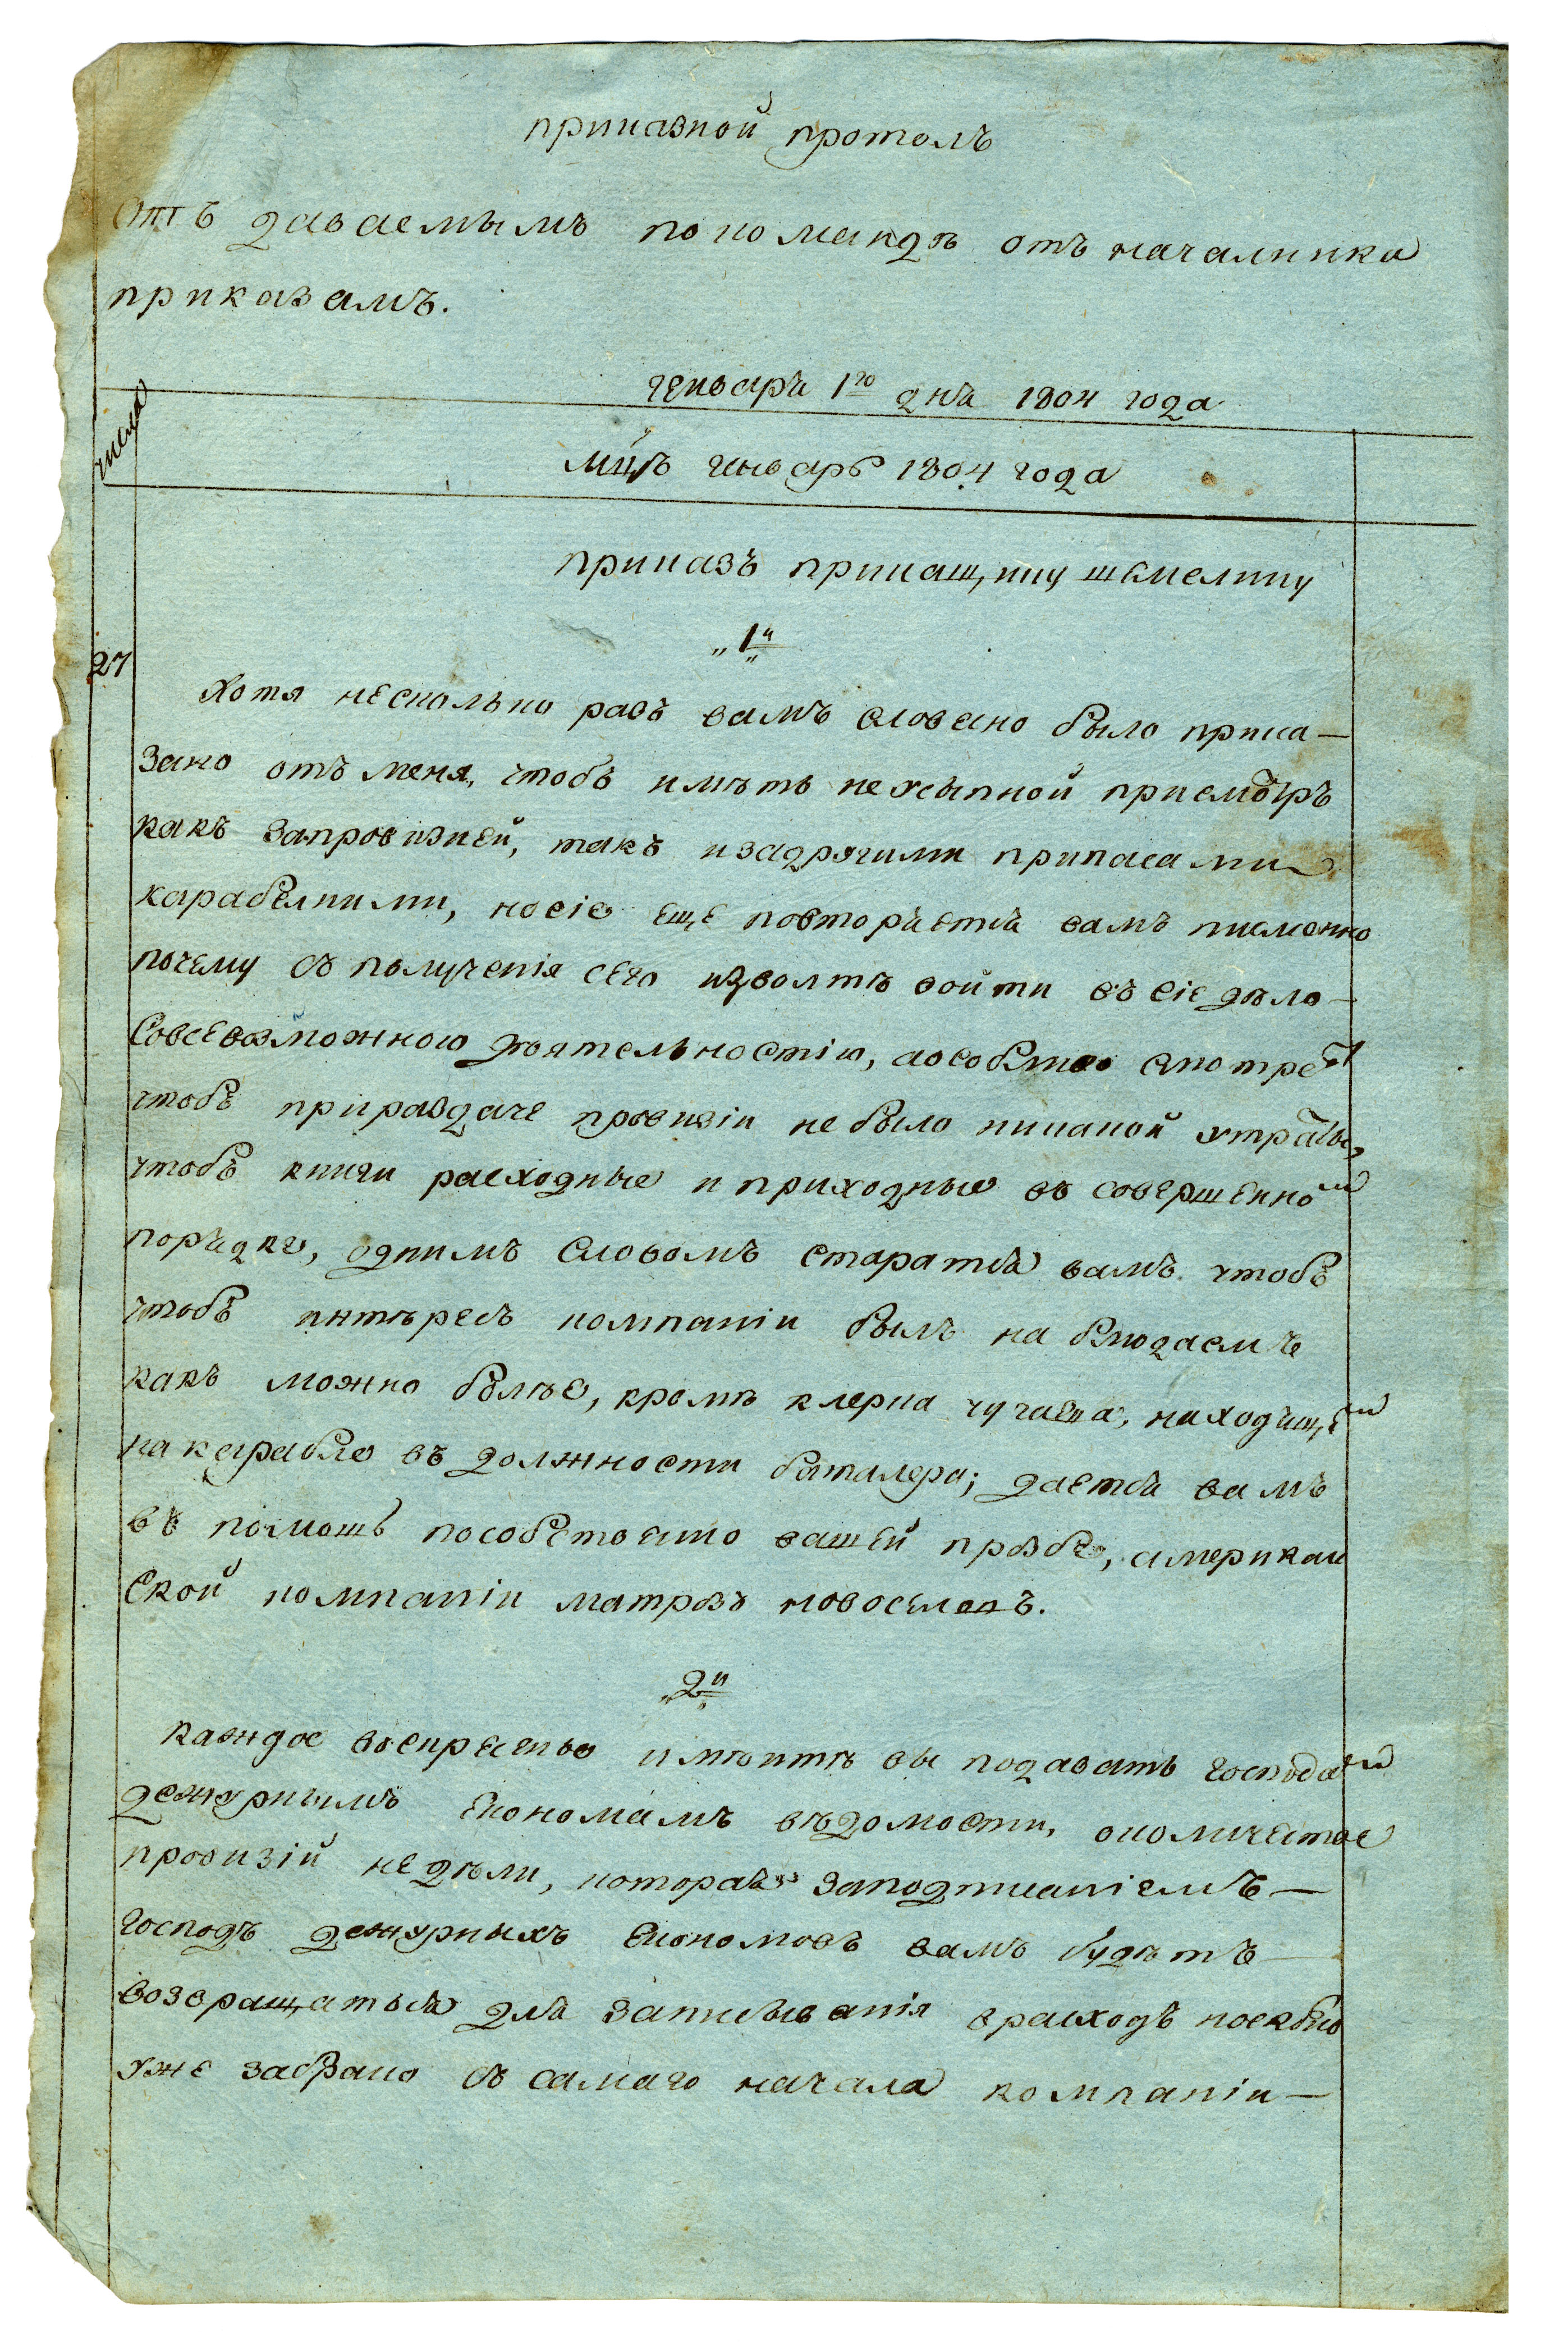 приказной протолъ
Отъ даваемымъ по командѣ отъ началника
приказамъ.
генваря 1го дня 1804 года
числа
мцъ генварь 1804 года
приказъ прикащику шемелину
„1й„
27
Хотя несколько разъ вамъ словесно было прика—
зано отъ меня, чтобъ имѣть неусыпной присмотръ
какъ запровизией, такъ изадругими припасами
карабелними, носіе еще повторяется вамъ писменно
почему съ полученія сего изволтѣ войти въ сіе дѣло—
Совсевозможною дѣятельностію, аособливо смотреть
чтобъ прираздаче провизіи не было никакой утраты,
чтобъ книги расходные и приходные въ совершенной
порядке, однимъ словомъ старатся вамъ чтобъ
чтобъ интѣресъ компаніи былъ на блюдаемъ
какъ можно болѣе, кромѣ клерка находящей
на карабле въ должности баталера; дается вамъ
въ помощь пособствено вашей прозбе, американ
ской компаніи матрозъ новоселовъ.
„2й„
каждое воскресенье имѣитѣ вы подавать господам
дежурнымъ економамъ вѣдомости, околичестве
провизій недѣли, которая заподписаніемъ—
господъ дежурныхъ економовъ вамъ будѣтъ—
возвращаться для записыванія врасходъ
уже забрано съ самаго начала компаніи—